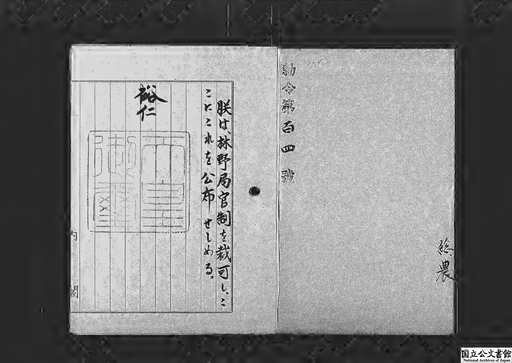 勅令第百四號
総農
朕は、林野局官制を裁可し、こ
こにこれを公布せしめる。
裕仁
天皇御璽
内閣
国立公文書館
National Archives of Japan